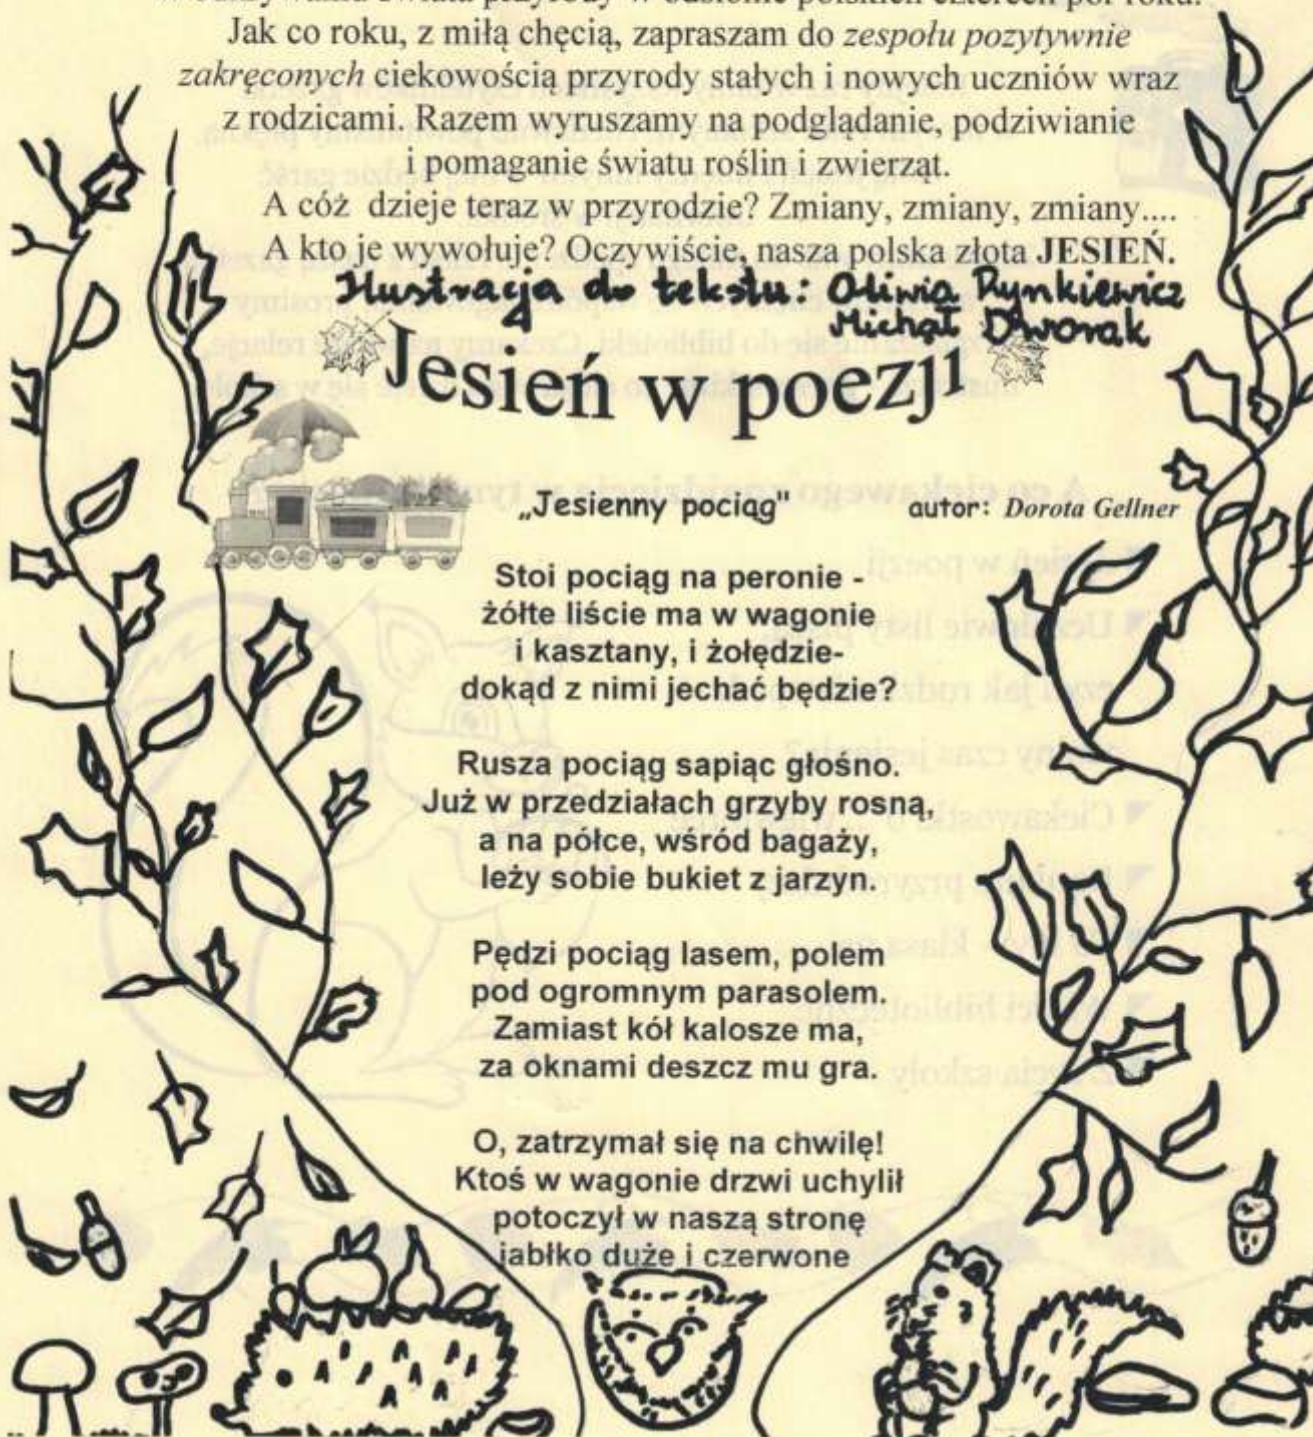 Jak co roku, z miłą chęcią, zapraszam do zespołu pozytywnie
zakręconych ciekowością przyrody stałych i nowych uczniów wraz
z rodzicami. Razem wyruszamy na podglądanie, podziwianie
i pomaganie światu roślin i zwierząt.
A cóż dzieje teraz w przyrodzie? Zmiany, zmiany, zmiany....
A kto je wywołuje? Oczywiście, nasza polska złota JESIEŃ.
Ilustracja do tekstu: Oliwia Rynkiewicz
Michał Dworak
Jesień w poezji
„Jesienny pociąg" autor: Dorota Gellner
Stoi pociąg na peronie -
żółte liście ma w wagonie
i kasztany, i żołędzie-
dokąd z nimi jechać będzie?
Rusza pociąg sapiąc głośno.
Już w przedziałach grzyby rosną,
a na półce, wśród bagaży,
leży sobie bukiet z jarzyn.
Pędzi pociąg lasem, polem
pod ogromnym parasolem.
Zamiast kół kalosze ma,
za oknami deszcz mu gra.
O, zatrzymał się na chwilę!
Ktoś w wagonie drzwi uchylił
potoczył w naszą stronę
jabłko duże i czerwone